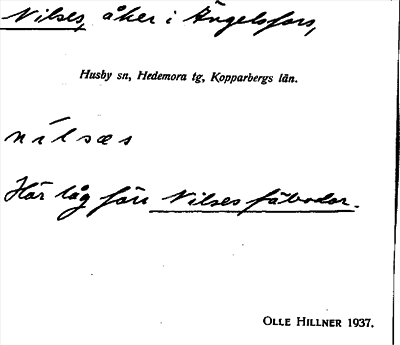 Nilses, åker i Ängelsfors,
Husby sn, Hedemora tg, Kopparbergs län.
nílsæs
Här låg förr Nilses fäbodar.
OLLE HILLNER 1937.